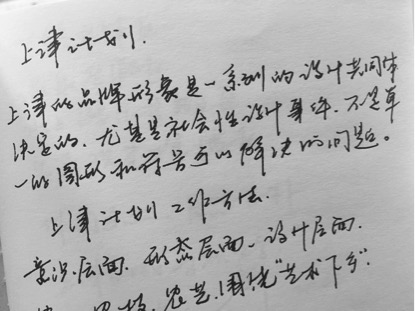 上津计划.
上津的品牌形象是一系列的设计共同体
决定的.尤其是社会性设计事件.不是单
一的图形和符号可以解决的问题。
上津计划工作方法.
意识层面.形态层面.设计层面.
农艺.围绕"艺术下乡".